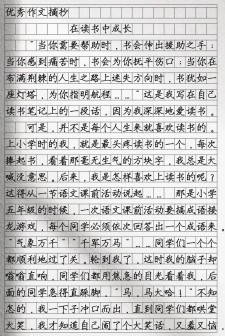 优秀作文摘抄
在读书中成长
"当你需要帮助时，书会伸出援助之手；
当你感到痛苦时，书会为你抚平伤口；当你在
布满荆棘的人生之路上迷失方向时，书犹如一
座灯塔，为你指明航程……"这是我写在自己
读书笔记上的一段话，因为我深深地爱读书。
可是，并不是每个人生来就喜欢读书的。
上小学时的我，就是最头疼读书的一个，每次
捧起书，看着那毫无生气的方块字，我总是大
喊没意思。后来，我是怎样喜欢上读书的呢？
这得从一节语文课前活动说起……那是小学
五年级的时候，一次语文课前活动要搞成语接
龙游戏，每个同学必须依次回答出一个成语来。
"气象万千""千军万马"……同学们一个个
都顺利地过了关。轮到我了，这时我的脑子却
嗡嗡直响，同学们都用焦急的目光看着我，后
面的同学急得直跺脚。"马，马大哈！"不知
怎的，我一下子冲口而出，直到同学们都哄堂
大笑，我才知道自己闹了个大笑话，又羞又恼